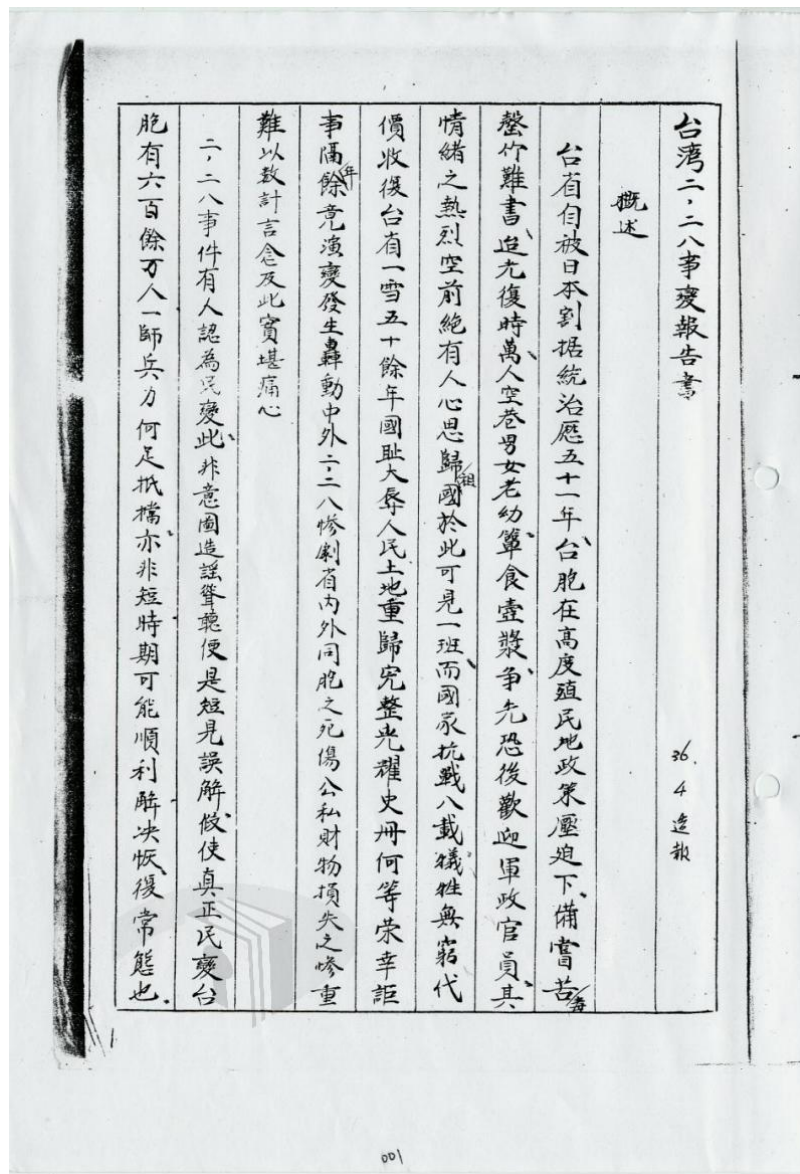 台湾二，二八事变報告書
36. 4 造報
概述
台省自被日本割据統治歷五十一年、台胞在高度殖民地政策壓迫下、備嘗苦毒
罄竹難書、迨光復時萬人空巷男女老幼、簞食壺漿、争先恐後歡迎軍政官員、其
情緒之熱烈空前絕有人心思歸祖國於此可見一班、而國家抗戰八載、犧牲無窮代
價收復台省一雪五十餘年國耻大辱人民土地重歸完整光耀史冊何等荣幸詎
事隔年餘竟演變發生轟動中外二，二八慘劇省內外同胞之死傷公私財物損失之慘重
難以数計言念及此實堪痛心
二，二八事件有人認為民變此、非意圖造謠聳聽便是短見誤解、倘使真正民變台
胞有六百餘万人一師兵力何足抵擋、亦非短時期可能順利解决恢、復常態也.
1
001